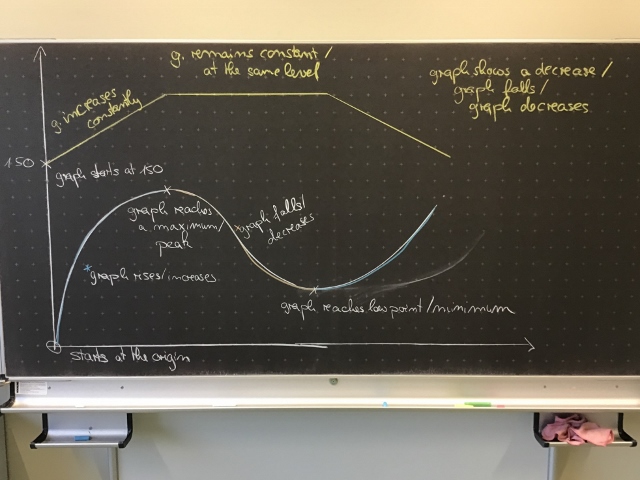 g. remains constant /
at the same level
graph shows a decrease /
graph falls /
graph decreases.
g. increases
constantly
150
graph starts at 150
graph reaches
a maximum/
peak
graph falls/
decreases
graph rises/increases
graph reaches low point / minimum
starts at the origin